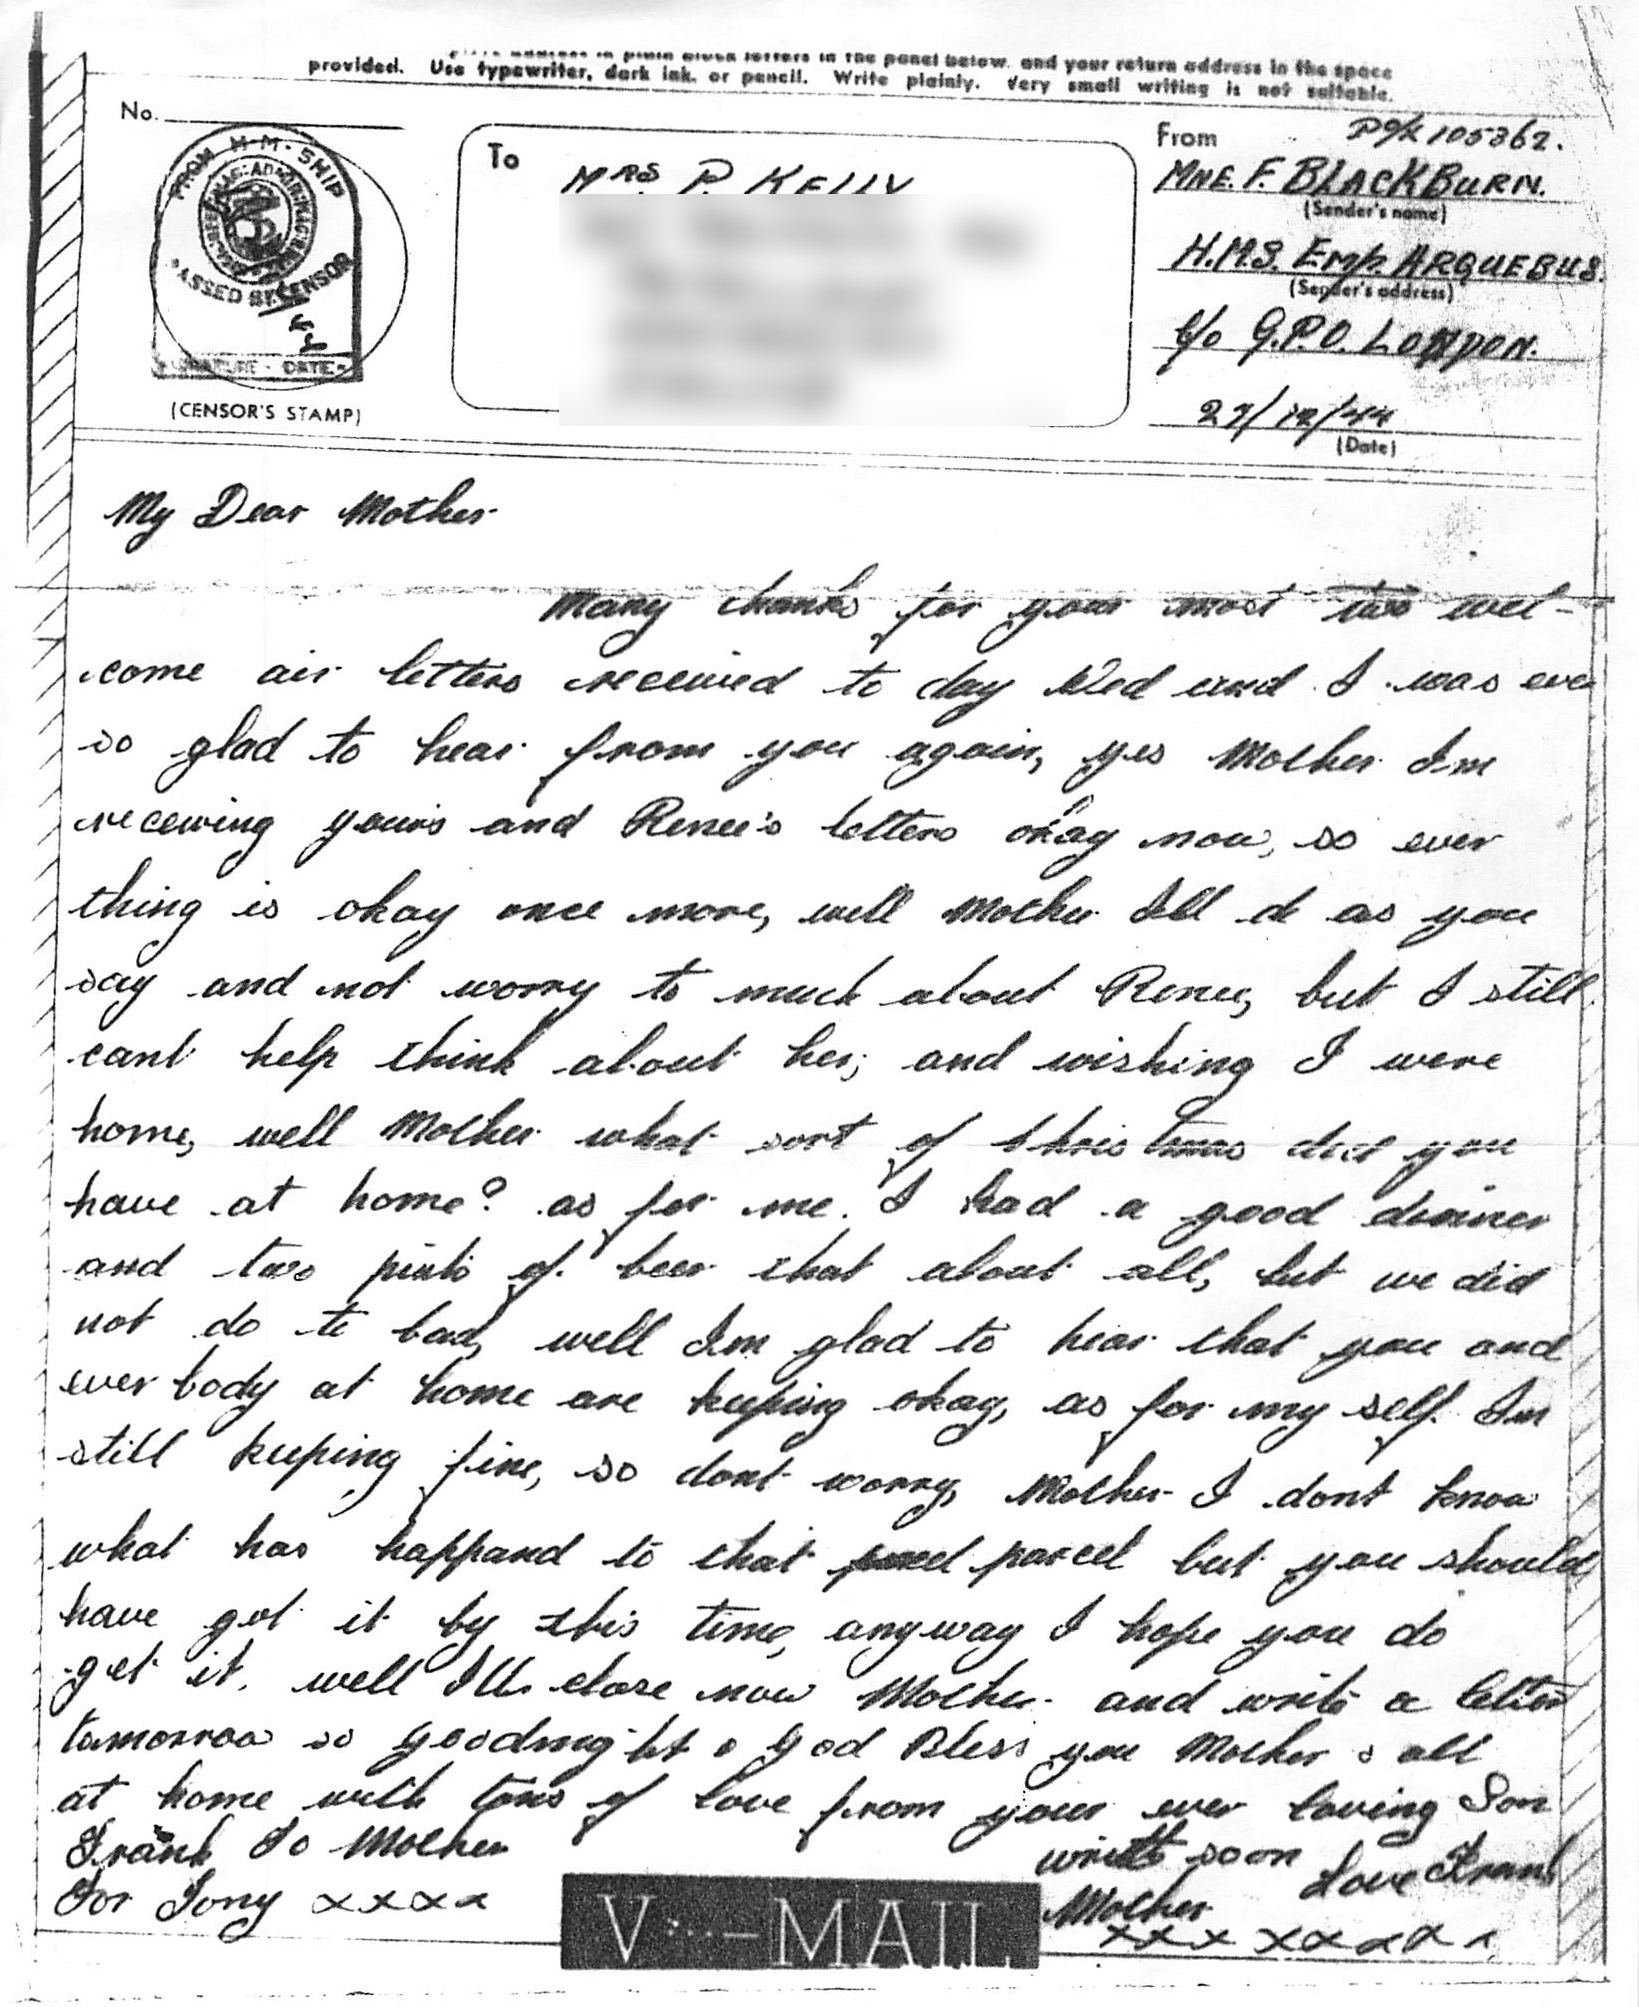 provided. Use typewriter, dark ink, or pencil. Write plainly. Very small writing is not suitable.
address in plain block letters in the panel below, and your return address in the space
No.
FROM H·M·SHIP
PASSED BY CENSOR
SIGNATURE - DATE
(CENSOR'S STAMP)
To
MRS P. KELLY
From
PO/X 105362.
MNE. F. BLACKBURN.
(Sender's name)
H.M.S. Emp. ARQUEBUS.
(Sender's address)
c/o G.P.O. LONDON.
27/12/44
(Date)
My Dear Mother
Many thanks for your most two wel-
come air letters received to day Wed and I was ever
so glad to hear from you again, yes Mother Im
receiving yours and Renee's letters okay now, so ever
thing is okay once more, well Mother Ill do as you
say and not worry to much about Renee, but I still
cant help think about her, and wishing I were
home, well Mother what sort of Christmas did you
have at home? as for me. I had a good dinner
and two pints of beer that about all, but we did
not do to bad, well Im glad to hear that you and
ever body at home are keeping okay, as for my self Im
still keeping fine, so dont worry, Mother I dont know
what has happand to that parcel but you should
have got it by this time, anyway I hope you do
get it. well Ill close now Mother and write a letter
tomorrow so goodnight & god Bless you Mother & all
at home with tons of love from your ever loving Son
Frank To Mother
For Tony xxxx
write soon
Mother
Love Frank
xxx xxxxxx
V···—MAIL